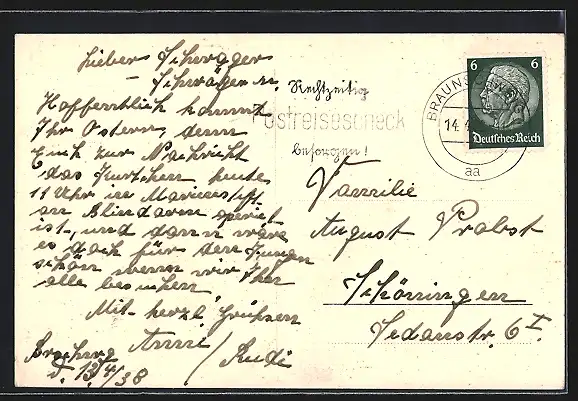 Lieber Schwager
– Schwägerin.
Hoffentlich kommt
Ihr Ostern, denn
Euch zur Nachricht
das Kurtchen heute
11 Uhr in Marienstift
an Blindarm operiet
ist, und dann wäre
es doch für den Jungen
schön wenn wir Ihn
alle besuchen
Mit herzl. Grüßen
Anni / Rudi
d. 13/4/38
Rechtzeitig
Postreisescheck
besorgen!
BRAUNS
14.4
aa
6 6
Deutsches Reich
Familie
August Probst
Schöningen
Sedanstr. 6 I.